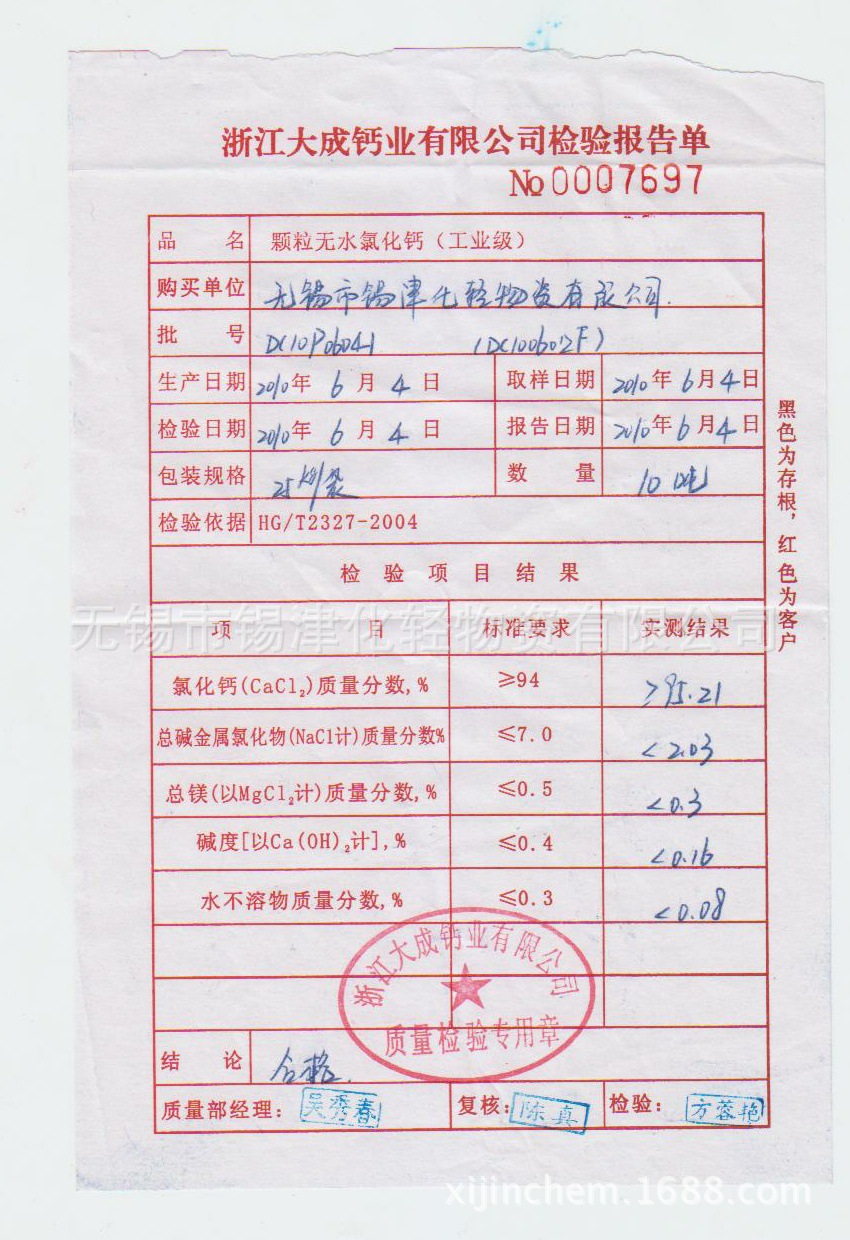 浙江大成钙业有限公司检验报告单
№0007697
品 名 颗粒无水氯化钙（工业级）
购买单位 无锡市锡津化轻物资有限公司.
批 号 DC10P06041 (DC100602F)
生产日期 2010年 6 月 4 日 取样日期 2010年 6月 4日
检验日期 2010年 6 月 4 日 报告日期 2010年 6月 4日
包装规格 25kg/袋 数 量 10吨
检验依据 HG/T2327-2004
检 验 项 目 结 果
项 目 标准要求 实测结果
氯化钙(CaCl₂)质量分数,% ≥94 ≥95.21
总碱金属氯化物(NaCl计)质量分数% ≤7.0 <2.03
总镁(以MgCl₂计)质量分数,% ≤0.5 <0.3
碱度[以Ca(OH)₂计],% ≤0.4 <0.16
水不溶物质量分数,% ≤0.3 <0.08
结 论 合格.
质量部经理: 吴秀春 复核: 陈真 检验: 方蓉艳
黑色为存根，红色为客户
浙江大成钙业有限公司
质量检验专用章
无锡市锡津化轻物资有限公司
xijinchem.1688.com